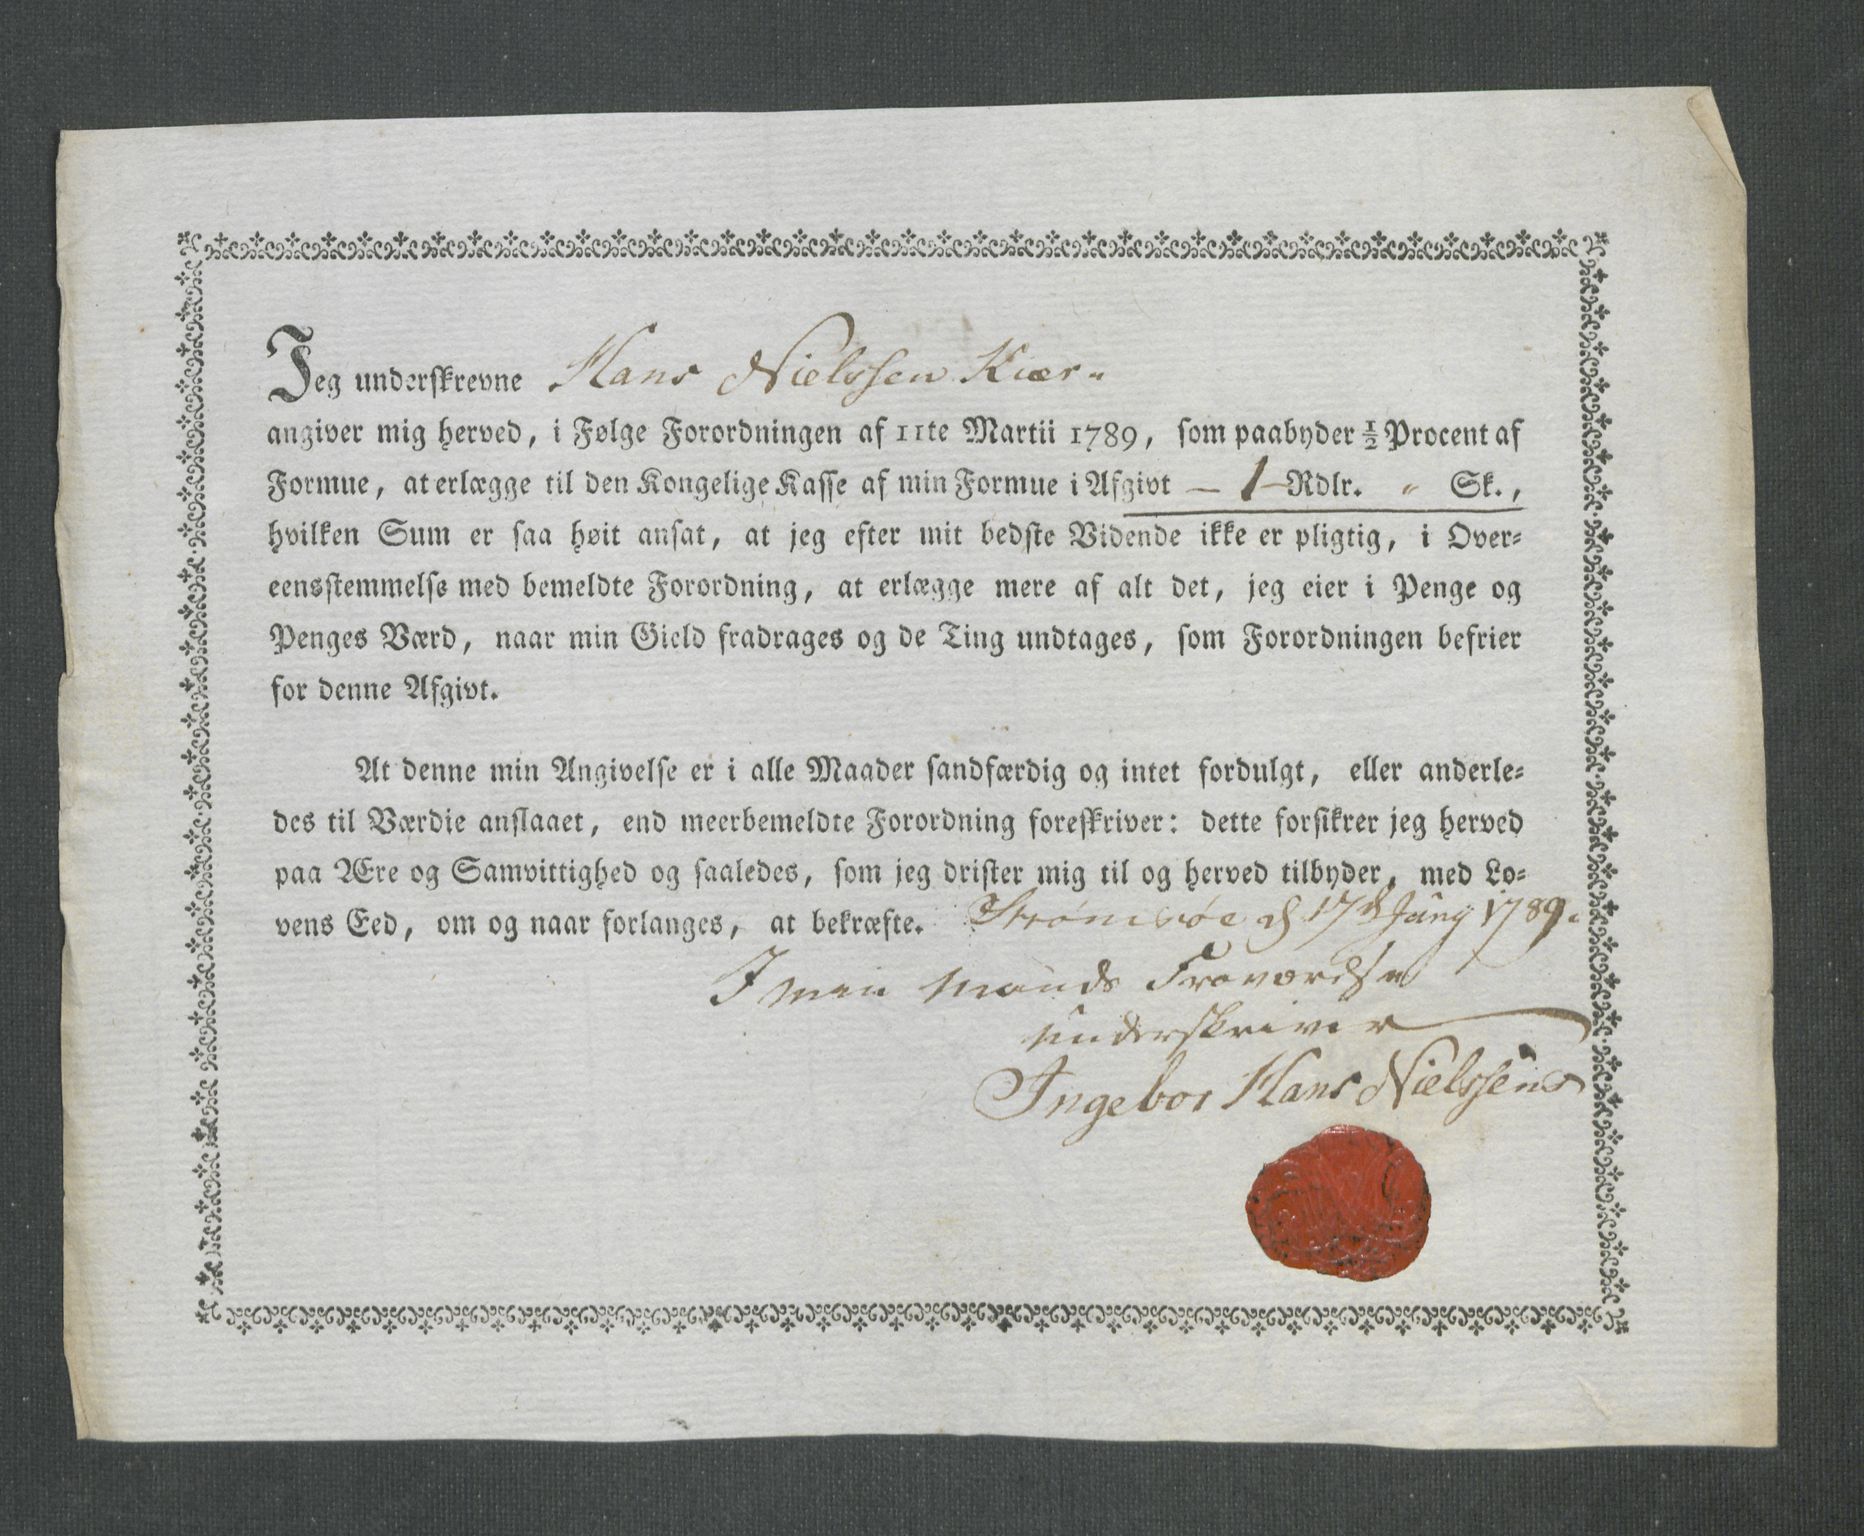 Jeg underskrevne Hans Nielssen Kiær„
angiver mig herved, i Følge Forordningen af 11te Martii 1789, som paabyder ½ Procent af
Formue, at erlægge til den Kongelige Kasse af min Formue i Afgivt — 1 — Rdlr. „ Sk.,
hvilken Sum er saa høit ansat, at jeg efter mit bedste Vidende ikke er pligtig, i Over-
eensstemmelse med bemeldte Forordning, at erlægge mere af alt det, jeg eier i Penge og
Penges Værd, naar min Gield fradrages og de Ting undtages, som Forordningen befrier
for denne Afgivt.
At denne min Angivelse er i alle Maader sandfærdig og intet fordulgt, eller anderle-
des til Værdie anslaaet, end meerbemeldte Forordning foreskriver: dette forsikrer jeg herved
paa Ære og Samvittighed og saaledes, som jeg drister mig til og herved tilbyder, med Lo-
vens Eed, om og naar forlanges, at bekræfte. Strømsøe d 17d Juny 1789.
I min Mands Fraværelse
underskriver
Ingebor Hans Nielssens